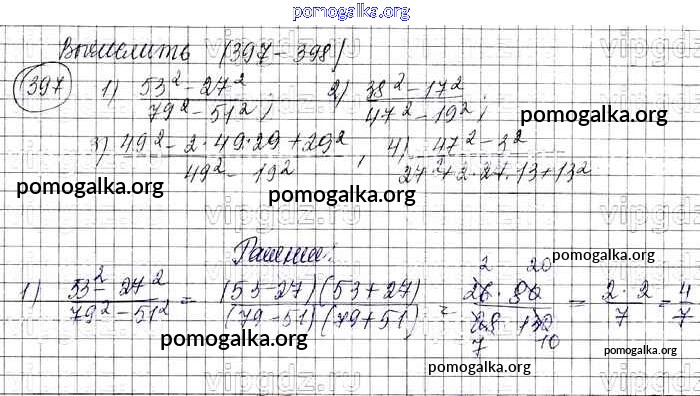 pomogalka.org
Вычислить (397-398)
397 1) 53² - 27² / 79² - 51² ; 2) 38² - 17² / 47² - 19² ;
pomogalka.org
3) 49² - 2·49·29 + 29² / 49² - 19² , 4) 47² - 3² / 27² + 2·27·13 + 13²
pomogalka.org pomogalka.org pomogalka.org
Решение:
pomogalka.org
1) 53² - 27² / 79² - 51² = (53-27)(53+27) / (79-51)(79+51) = 26·80 / 28·130 = 2·2 / 7 = 4/7
2 20
7 10
pomogalka.org
pomogalka.org
pomogalka.org